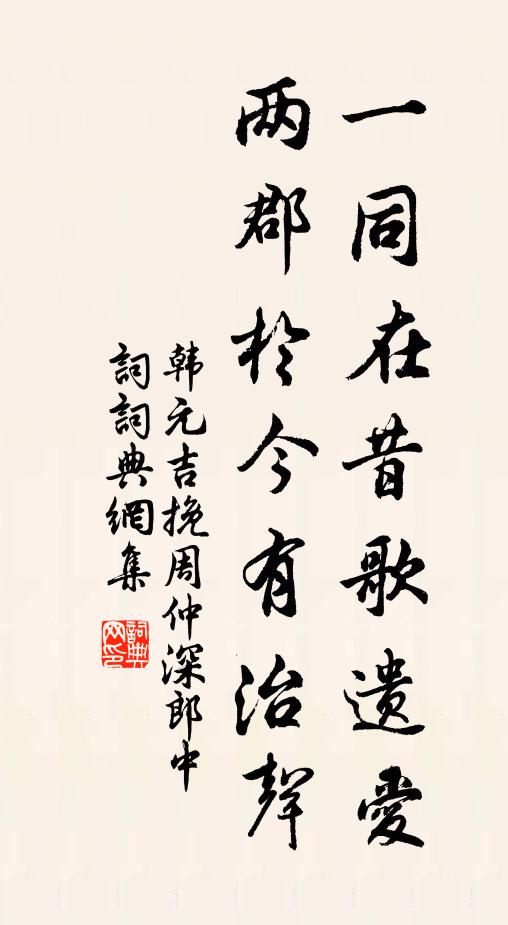 一同在昔歌遗愛
两郡於今有治聲
韩元吉挽周仲深郎中
詞詞典網集
詞典网印